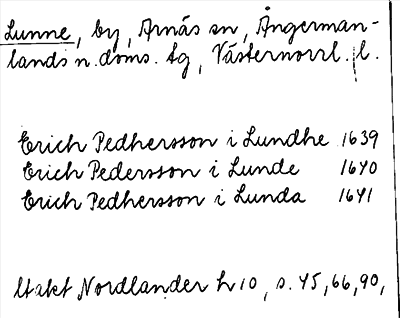 Lunne, by, Arnäs sn, Ångerman-
lands n. doms. tg, Västernorrl. l.
Erich Pedhersson i Lundhe 1639
Erich Pedersson i Lunde 1640
Erich Pedhersson i Lunda 1641
Utakt Nordlander h 10, s. 45, 66, 90,